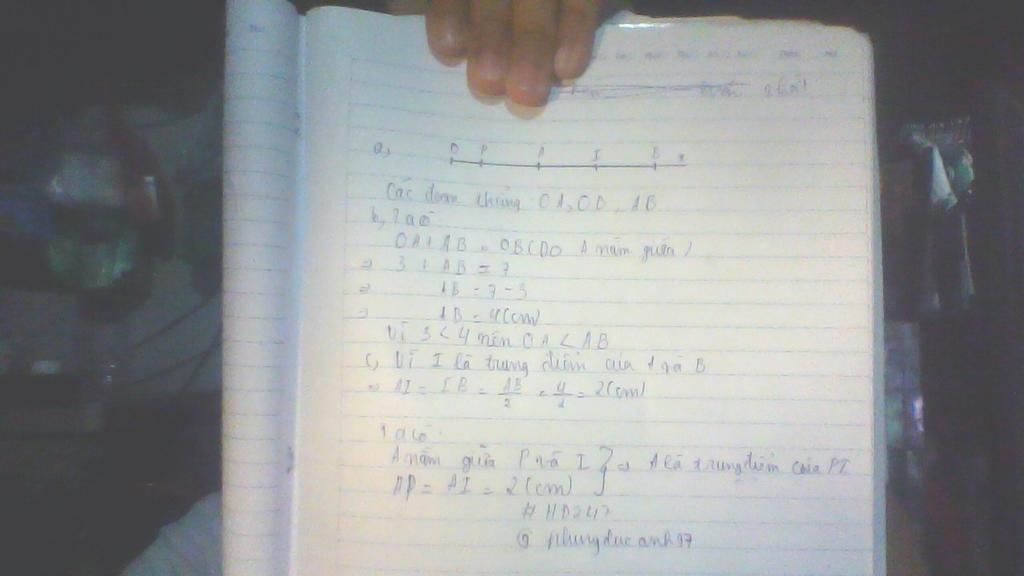 a,
O P A I B x
Các đoạn thẳng: OA, OB, AB
b, Ta có
OA + AB = OB (Do A nằm giữa)
=> 3 + AB = 7
=> AB = 7 - 3
=> AB = 4 (cm)
Vì 3 < 4 nên OA < AB
c, Vì I là trung điểm của A và B
=> AI = IB = AB/2 = 4/2 = 2 (cm)
Ta có:
A nằm giữa P và I } => A là trung điểm của PI
AP = AI = 2 (cm)
# HD247
@ phungducanh97